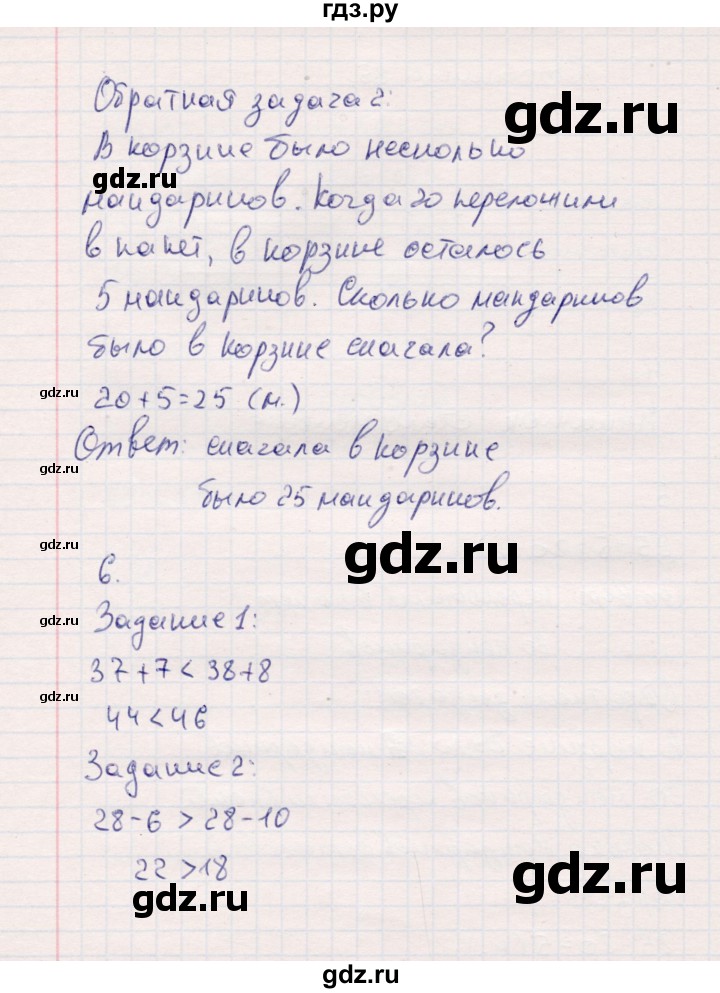 гдз.ру
Обратная задача 2:
В корзине было несколько
gdz.ru
gdz.ru
мандаринов. Когда 20 переложили
в пакет, в корзине осталось
gdz.ru
5 мандаринов. Сколько мандаринов
было в корзине сначала?
gdz.ru
20+5=25 (м.)
Ответ: сначала в корзине
gdz.ru
было 25 мандаринов.
gdz.ru
gdz.ru
6.
gdz.ru
Задание 1:
37+7<38+8
gdz.ru
44<46
Задание 2:
28-6 > 28-10
22 >18
gdz.ru
gdz.ru
gdz.ru